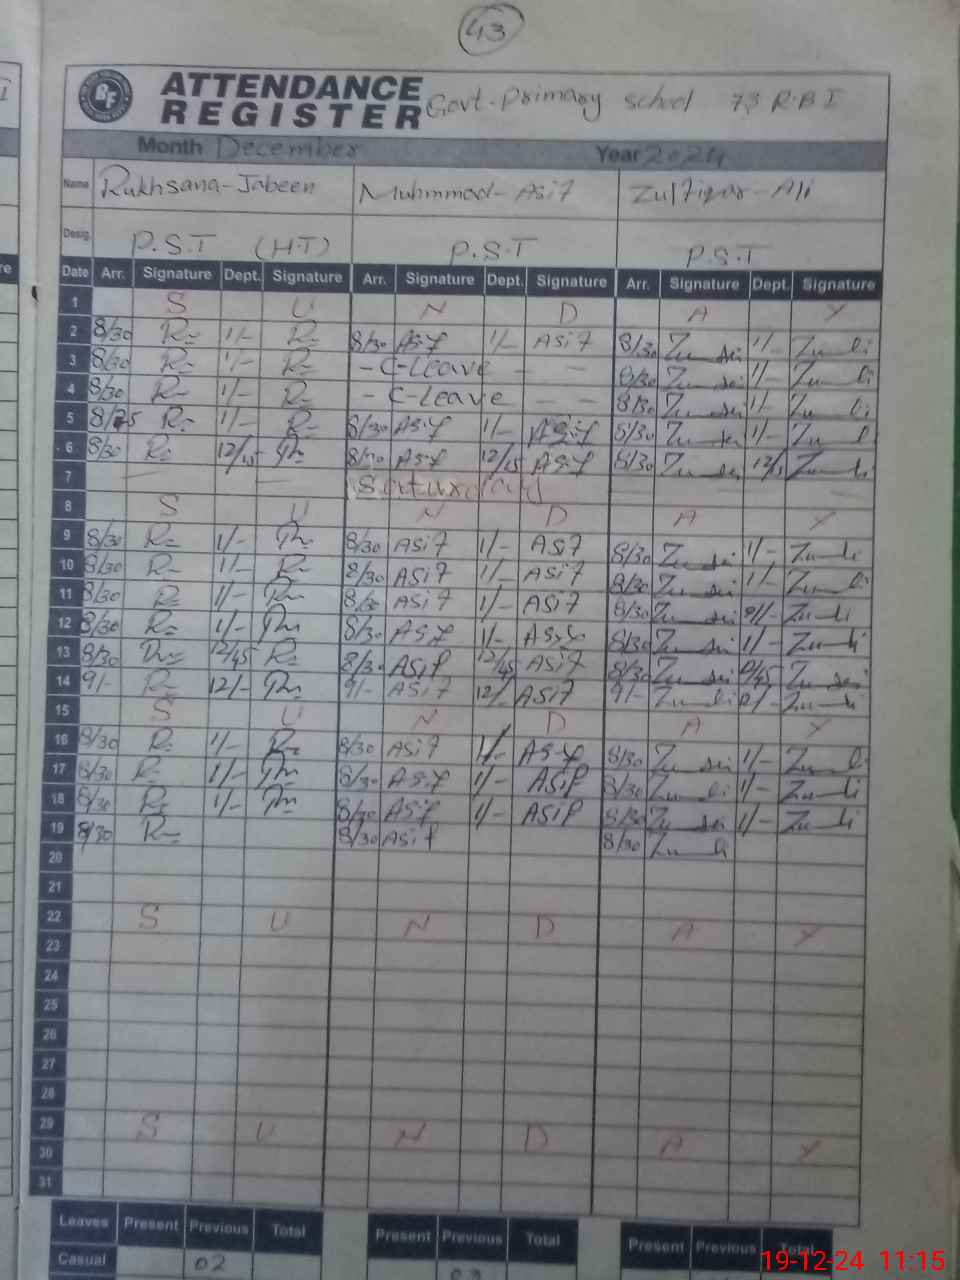 43
ATTENDANCE REGISTER Govt. Primary school 73 R.B I
Month December Year 2024
Name Rukhsana-Jabeen Muhmmad-Asif Zulfiqar-Ali
Desig. P.S.T (H.T) P.S.T P.S.T
Date Arr. Signature Dept. Signature Arr. Signature Dept. Signature Arr. Signature Dept. Signature
1 S U N D A Y
2 8/30 1/- 8/30 Asif 1/- Asif 8/30 1/-
3 8/30 1/- - C-Leave - - 8/30 1/-
4 8/30 1/- - C-Leave - - 8/30 1/-
5 8/25 1/- 8/30 Asif 1/- Asif 8/30 1/-
6 8/30 12/15 8/30 Asif 12/15 Asif 8/30
7 Saturday
8 S U N D A Y
9 8/30 1/- 8/30 Asif 1/- Asif 8/30 1/-
10 8/30 1/- 8/30 Asif 1/- Asif 8/30 1/-
11 8/30 1/- 8/30 Asif 1/- Asif 8/30
12 8/30 1/- 8/30 Asif 1/- 8/30 1/-
13 8/30 12/45 8/30 Asif 12/45 Asif 8/30
14 9/- 12/- 9/- Asif 12/- Asif 9/-
15 S U N D A Y
16 8/30 1/- 8/30 Asif 1/- Asif 8/30 1/-
17 8/30 1/- 8/30 Asif 1/- Asif 8/30 1/-
18 8/30 1/- 8/30 Asif 1/- Asif 8/30 1/-
19 8/30 8/30 Asif 8/30
20
21
22 S U N D A Y
23
24
25
26
27
28
29 S U N D A Y
30
31
Leaves Present Previous Total Present Previous Total Present Previous Total
Casual 02
19-12-24 11:15